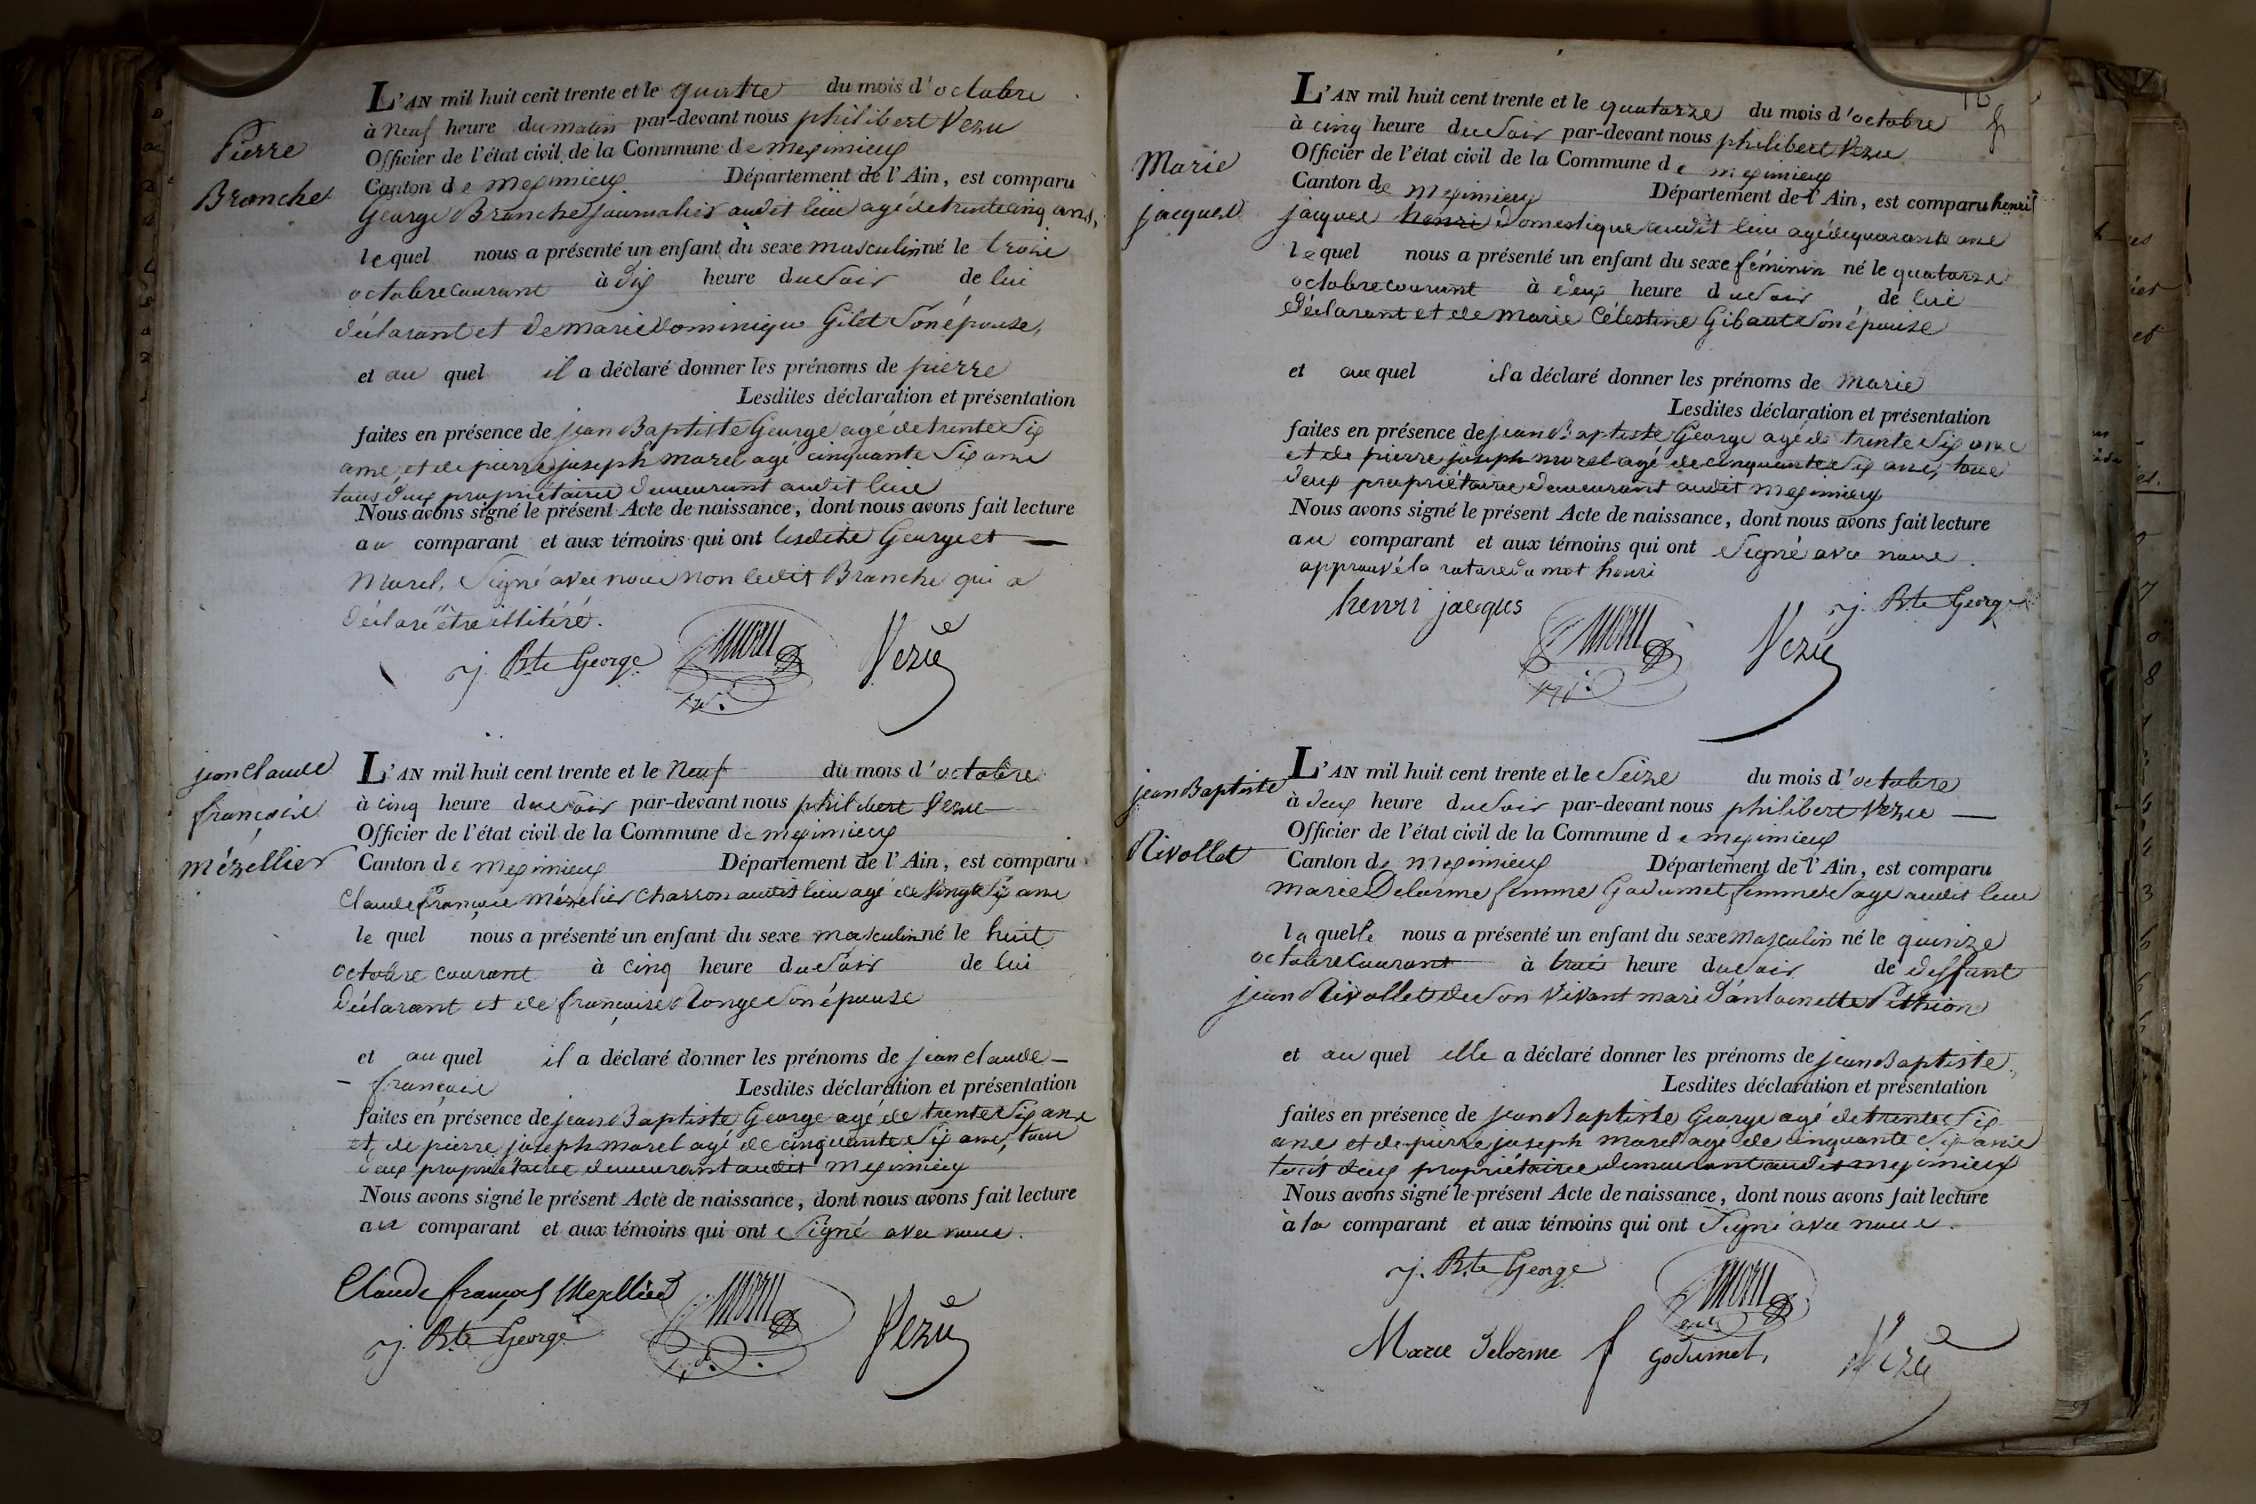 Pierre
Branche
L'AN mil huit cent trente et le quatre du mois d'octobre
à neuf heure du matin par-devant nous philibert Vezu
Officier de l'état civil de la Commune de meximieux
Canton de meximieux Département de l'Ain, est comparu
George Branche journalier audit lieu agé de trente cinq ans,
lequel nous a présenté un enfant du sexe masculin né le trois
octobre courant à dix heure du soir de lui
déclarant et de marie dominique Gilet son épouse,
et au quel il a déclaré donner les prénoms de pierre
Lesdites déclaration et présentation
faites en présence de jean Baptiste George agé de trente six
ans, et de pierre joseph morel agé cinquante six ans
tous deux propriétaires demeurant audit lieu
Nous avons signé le présent Acte de naissance, dont nous avons fait lecture
au comparant et aux témoins qui ont lesdits George et
Morel, signé avec nous non ledit Branche qui a
déclaré être illitéré.
j. Bte George Vezu
jean Claude
françois
mézellier
L'AN mil huit cent trente et le neuf du mois d'octobre
à cinq heure du soir par-devant nous philibert Vezu
Officier de l'état civil de la Commune de meximieux
Canton de meximieux Département de l'Ain, est comparu
Claude françois mézelier charron audit lieu agé de vingt six ans
le quel nous a présenté un enfant du sexe masculin né le huit
octobre courant à cinq heure du soir de lui
déclarant et de françoise Ronge son épouse
et au quel il a déclaré donner les prénoms de jean claude
françois Lesdites déclaration et présentation
faites en présence de jean Baptiste George agé de trente six ans
et de pierre joseph morel agé de cinquante six ans, tous
deux propriétaires demeurant audit meximieux
Nous avons signé le présent Acte de naissance, dont nous avons fait lecture
au comparant et aux témoins qui ont signé avec nous.
Claude françois Mezellier
j. Bte George Vezu
Marie
jacques
L'AN mil huit cent trente et le quatorze du mois d'octobre
à cinq heure du soir par-devant nous philibert Vezu
Officier de l'état civil de la Commune de meximieux
Canton de meximieux Département de l'Ain, est comparu henri
jacques henri domestique audit lieu agé de quarante ans
lequel nous a présenté un enfant du sexe féminin né le quatorze
octobre courant à deux heure du soir de lui
déclarant et de marie Célestine Gibaut son épouse
et au quel il a déclaré donner les prénoms de marie
Lesdites déclaration et présentation
faites en présence de jean Baptiste George agé de trente six ans
et de pierre joseph morel agé de cinquante six ans, tous
deux propriétaires demeurant audit meximieux
Nous avons signé le présent Acte de naissance, dont nous avons fait lecture
au comparant et aux témoins qui ont signé avec nous.
approuvé la rature du mot henri
henri jacques j. Bte George
Vezu
jean Baptiste
Rivollet
L'AN mil huit cent trente et le seize du mois d'octobre
à deux heure du soir par-devant nous philibert Vezu
Officier de l'état civil de la Commune de meximieux
Canton de meximieux Département de l'Ain, est comparu
marie Delorme femme Godumet femme sage audit lieu
la quelle nous a présenté un enfant du sexe masculin né le quinze
octobre courant à trois heure du soir de deffunt
jean Rivollet de son vivant mari d'antoinette
et au quel elle a déclaré donner les prénoms de jean Baptiste
Lesdites déclaration et présentation
faites en présence de jean Baptiste George agé de trente six
ans et de pierre joseph morel agé de cinquante six ans
tous deux propriétaires demeurant audit meximieux
Nous avons signé le présent Acte de naissance, dont nous avons fait lecture
à la comparant et aux témoins qui ont signé avec nous.
j. Bte George
Marie Delorme f godumet, Vezu